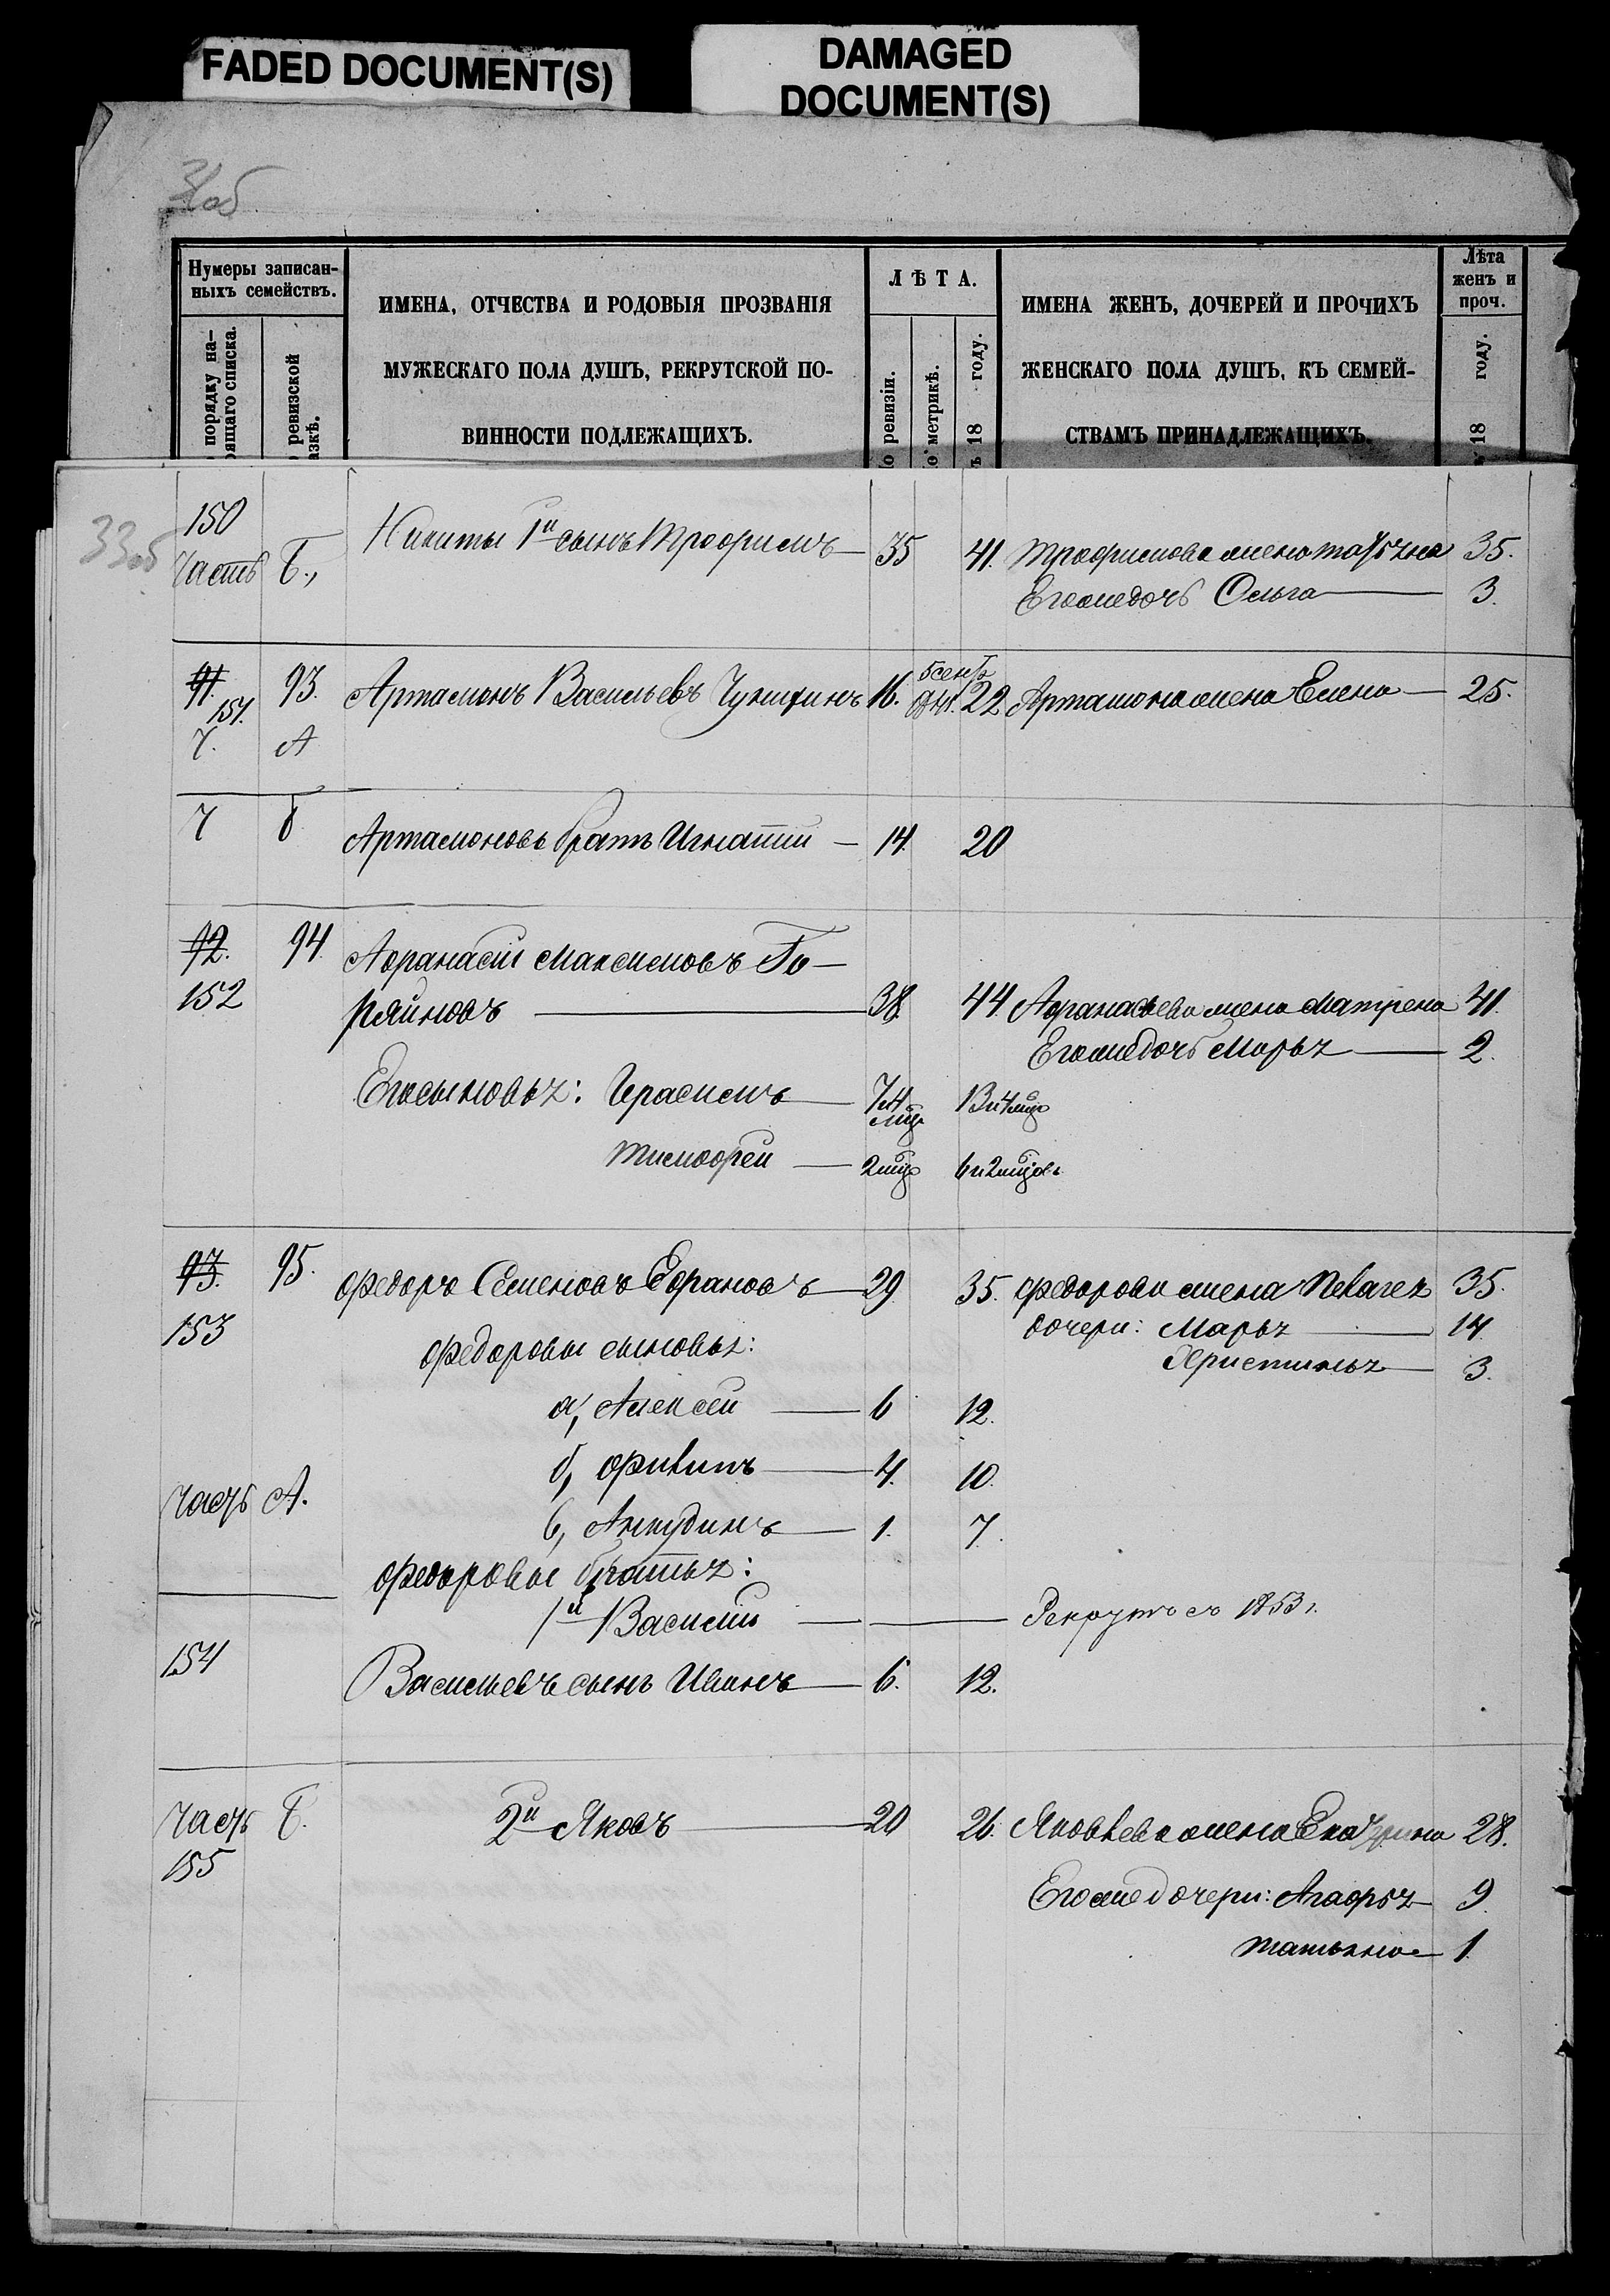 FADED DOCUMENT(S)
DAMAGED
DOCUMENT(S)
31об
Нумеры записан-
ныхъ семействъ.
порядку на-
ящаго списка.
ревизской
азкѣ.
ИМЕНА, ОТЧЕСТВА И РОДОВЫЯ ПРОЗВАНІЯ
МУЖЕСКАГО ПОЛА ДУШЪ, РЕКРУТСКОЙ ПО-
ВИННОСТИ ПОДЛЕЖАЩИХЪ.
ЛѢТА.
о ревизіи.
о метрикѣ.
ъ 18 году.
ИМЕНА ЖЕНЪ, ДОЧЕРЕЙ И ПРОЧИХЪ
ЖЕНСКАГО ПОЛА ДУШЪ, КЪ СЕМЕЙ-
СТВАМЪ ПРИНАДЛЕЖАЩИХЪ.
Лѣта
женъ и
проч.
18 году.
33об
150
Часть Б., Никиты 1й сынъ Трофимъ 35 41. Трофимова жена Татьяна 35.
Его же дочь Ольга 3.
91. 93. Артамонъ Васильевъ 16. 22 Артамона жена Елена 25.
151.
Ч. А
Ч б Артамоновъ братъ Игнатій 14. 20
92. 94. Афанасій Максимовъ Го-
152 ряйновъ 38. 44. Афанасьева жена Матрена 41.
Его же дочь Марья 2.
Его сыновья: Герасимъ 7 и 4 мцв 13 и 4 мцв
Тимофей 2 мцв 6 и 2 мцовъ
93. 95. Федоръ Семеновъ Ефановъ 29 35. Федорова жена Пелагея 35.
153 дочери: Марья 14.
Федоровы сыновья: Христинья 3.
а, Алексей 6 12.
б, Филипъ 4. 10.
Часть А. в, Анкудинъ 1. 7.
Федоровы братья:
1й Василій Рекрутъ съ 1853 г.
154 Васильевъ сынъ Иванъ 6. 12.
Часть Б. 2й Яковъ 20 26. Яковлева жена Екатерина 28.
155
Его же дочери: Агафья 9.
Татьяна 1.